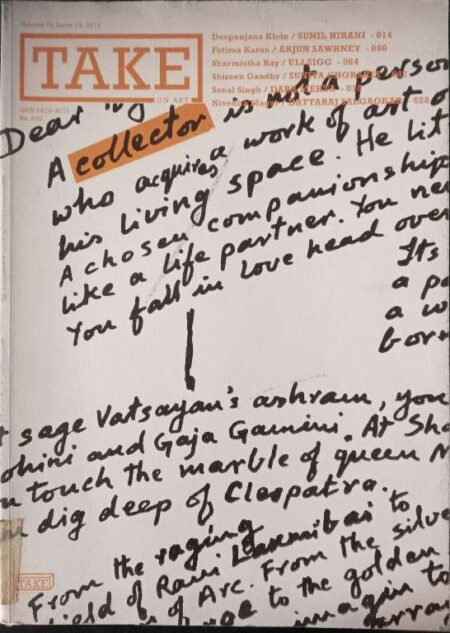 TAKE
ON ART
Deepanjana Klein / SUNIL HIRANI - 014
Fatima Karan / ARJUN SAWHNEY - 060
Sharmistha Ray / ULI SIGG - 084
Shireen Gandhy /
Sonal Singh /
Dear
A collector is not a person
who acquires a work of art o
his living space. He lit
A chosen companionship
like a life partner. You ne
You fall in love head over
Its
a pa
a w
born
sage Vatsayan's ashram, you
ohini and Gaja Gamini. At Sha
touch the marble of queen N
dig deep of Cleopatra.
From the raging
ield of Rani Laxmibai to
of Arc. From the silve
to the golden
imagin to
TAKE